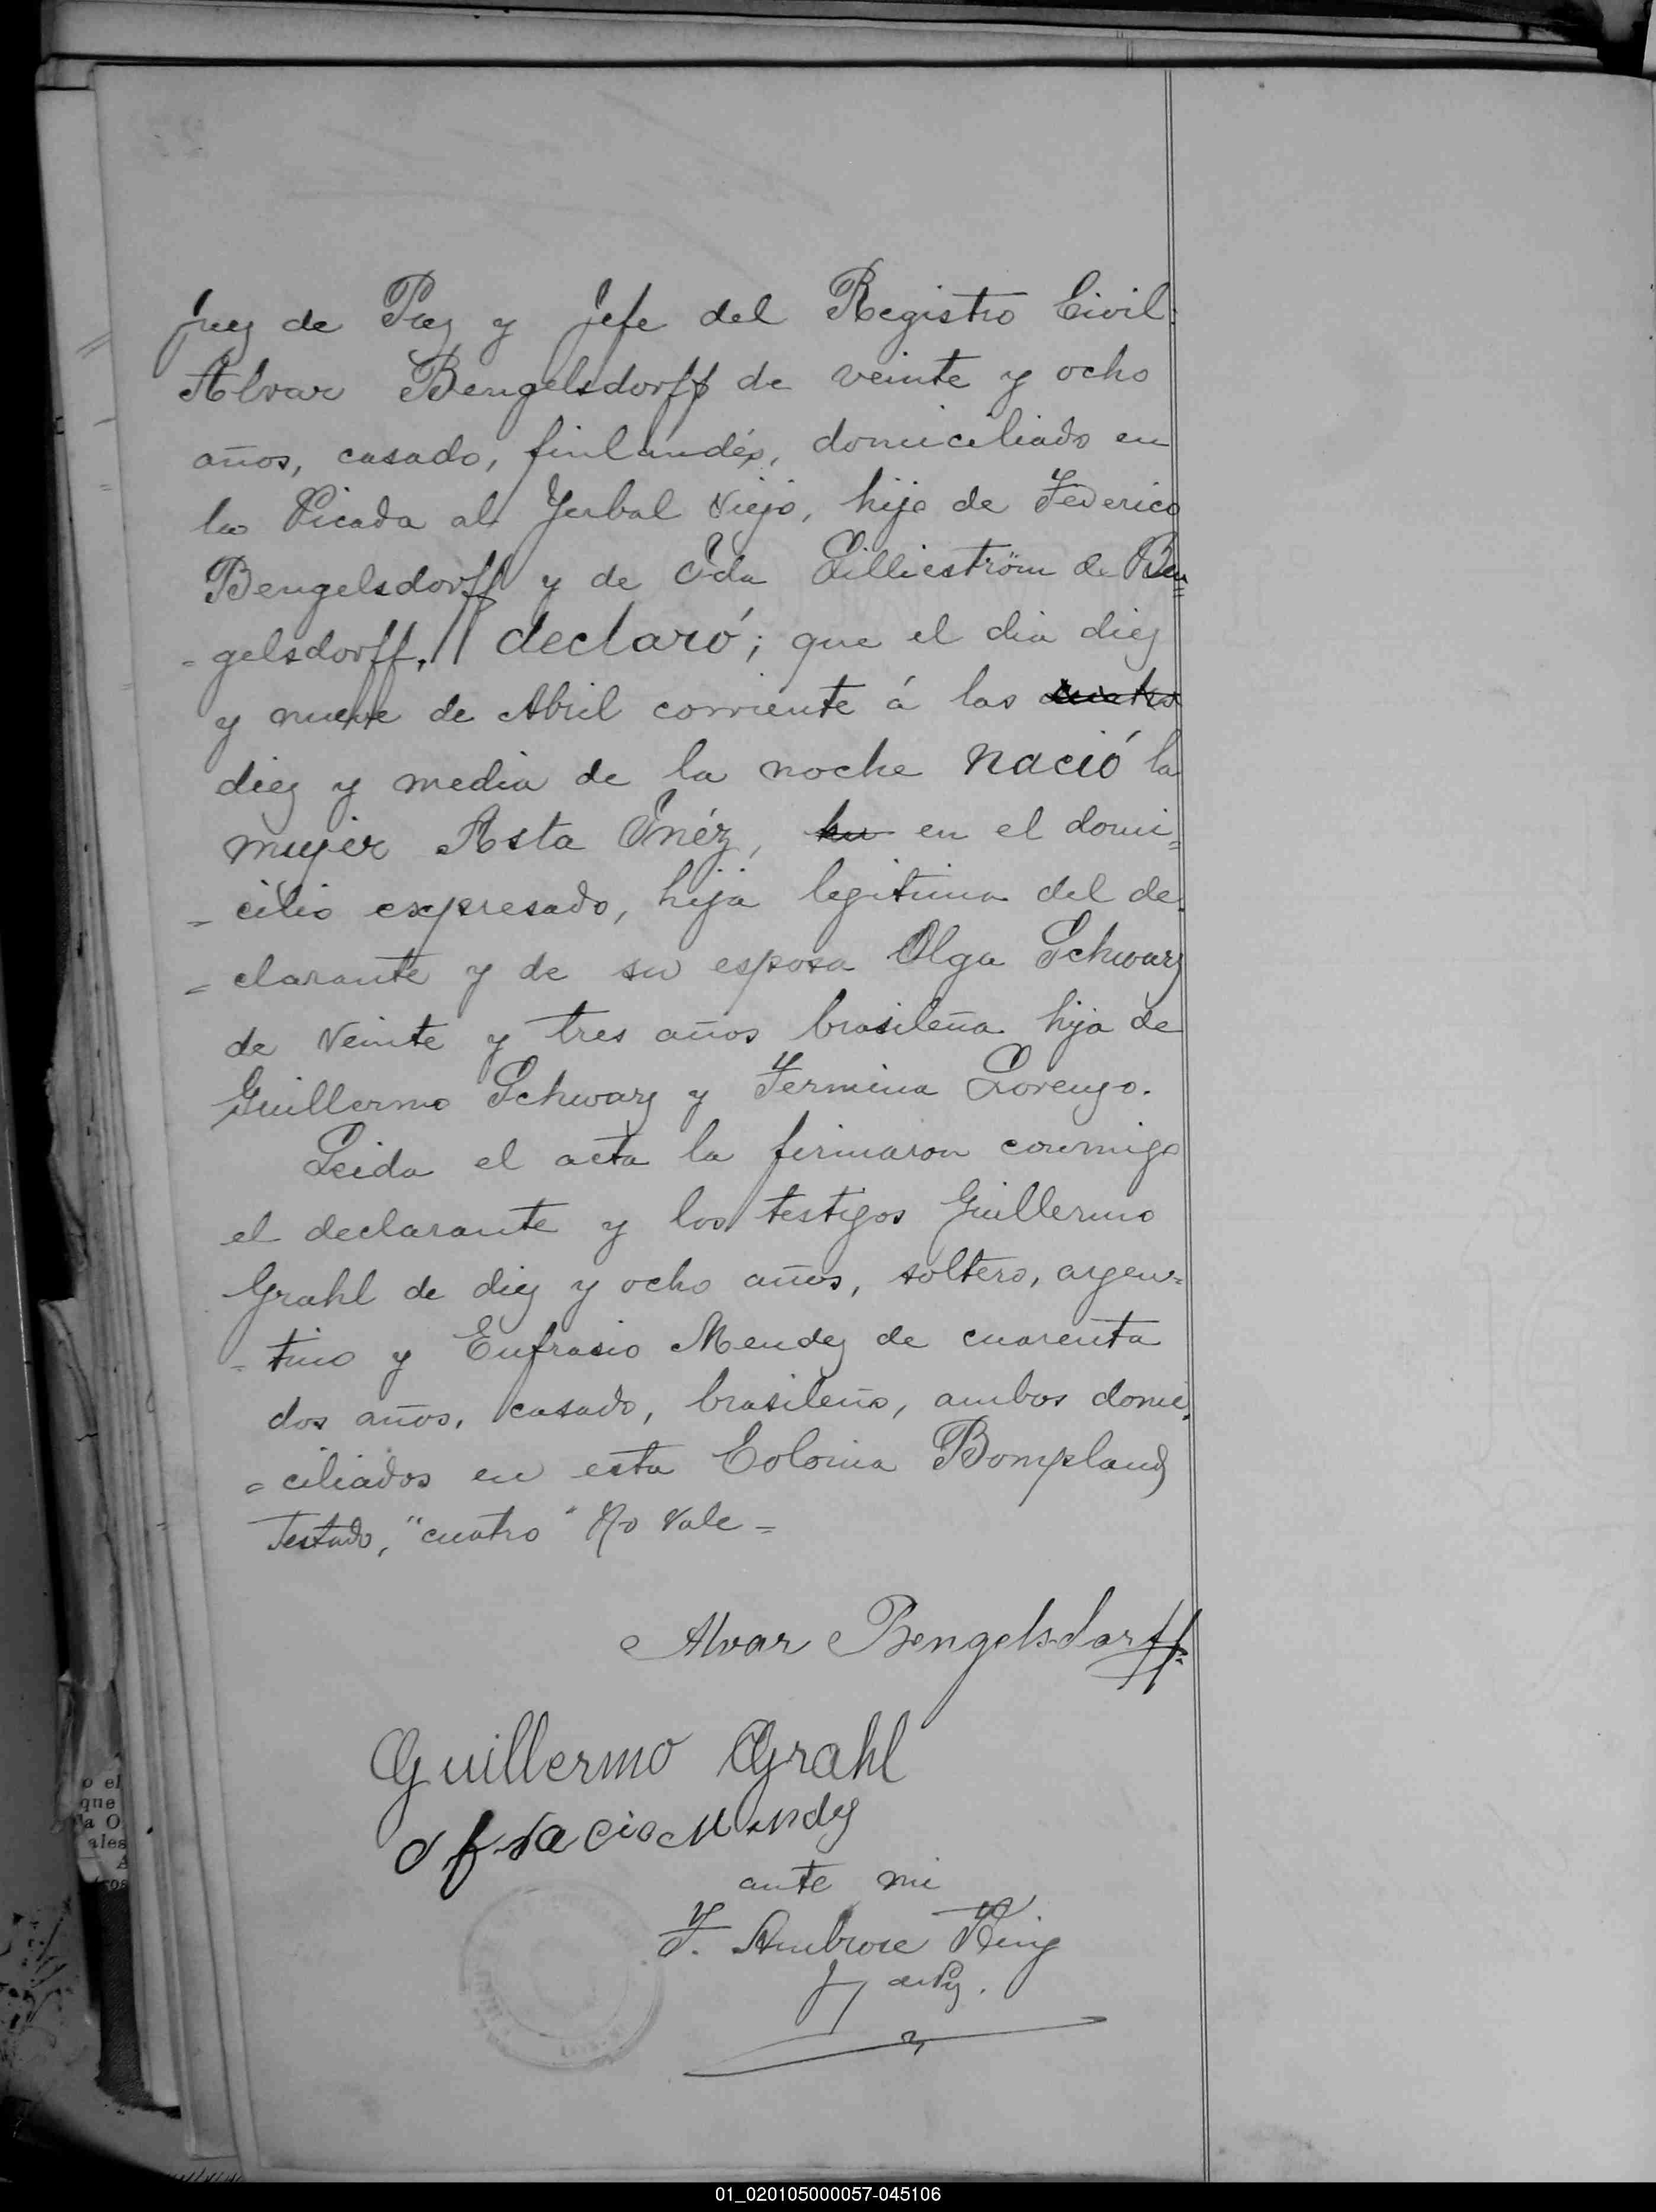 Juez de Paz y Jefe del Registro Civil:
Alvar Bengelsdorff de veinte y ocho
años, casado, finlandés, domiciliado en
la Picada al Yerbal Viejo, hijo de Federico
Bengelsdorff y de Eda Lillieström de Ben=
=gelsdorff, declaró; que el dia diez
y nueve de Abril corriente á las cuatro
diez y media de la noche nació la
mujer Asta Inéz, su en el domi=
=cilio expresado, hija legitima del de
=clarante y de su esposa Olga Schwarz
de veinte y tres años brasileña hija de
Guillermo Schwarz y Fermina Lorenzo.
Leida el acta la firmaron conmigo
el declarante y los testigos Guillermo
Grahl de diez y ocho años, soltero, argen=
=tino y Eufrasio Mendez de cuarenta
dos años, casado, brasileño, ambos domi
=ciliados en esta Colonia Bompland
Testado, "cuatro" No Vale=
Alvar Bengelsdorff
Guillermo Grahl
ofracio Mendez
ante mi
F. Ambrose King
J de Pz.
o el
que
la O
ales
01_020105000057-045106